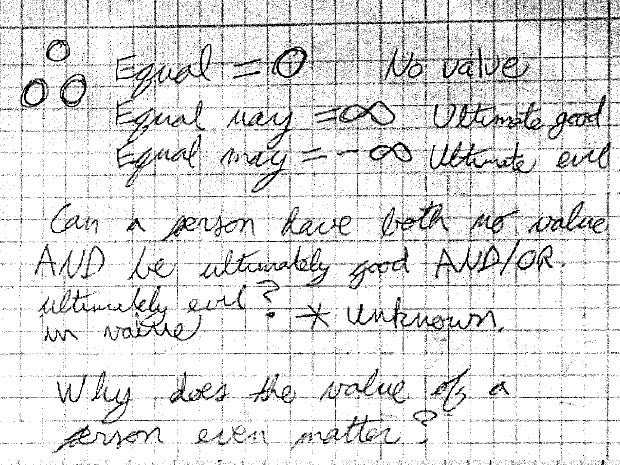 Equal = 0 No value
Equal may = ∞ Ultimate good
Equal may = -∞ Ultimate evil
Can a person have both no value
AND be ultimately good AND/OR
ultimately evil?
in value * Unknown.
Why does the value of a
person even matter?